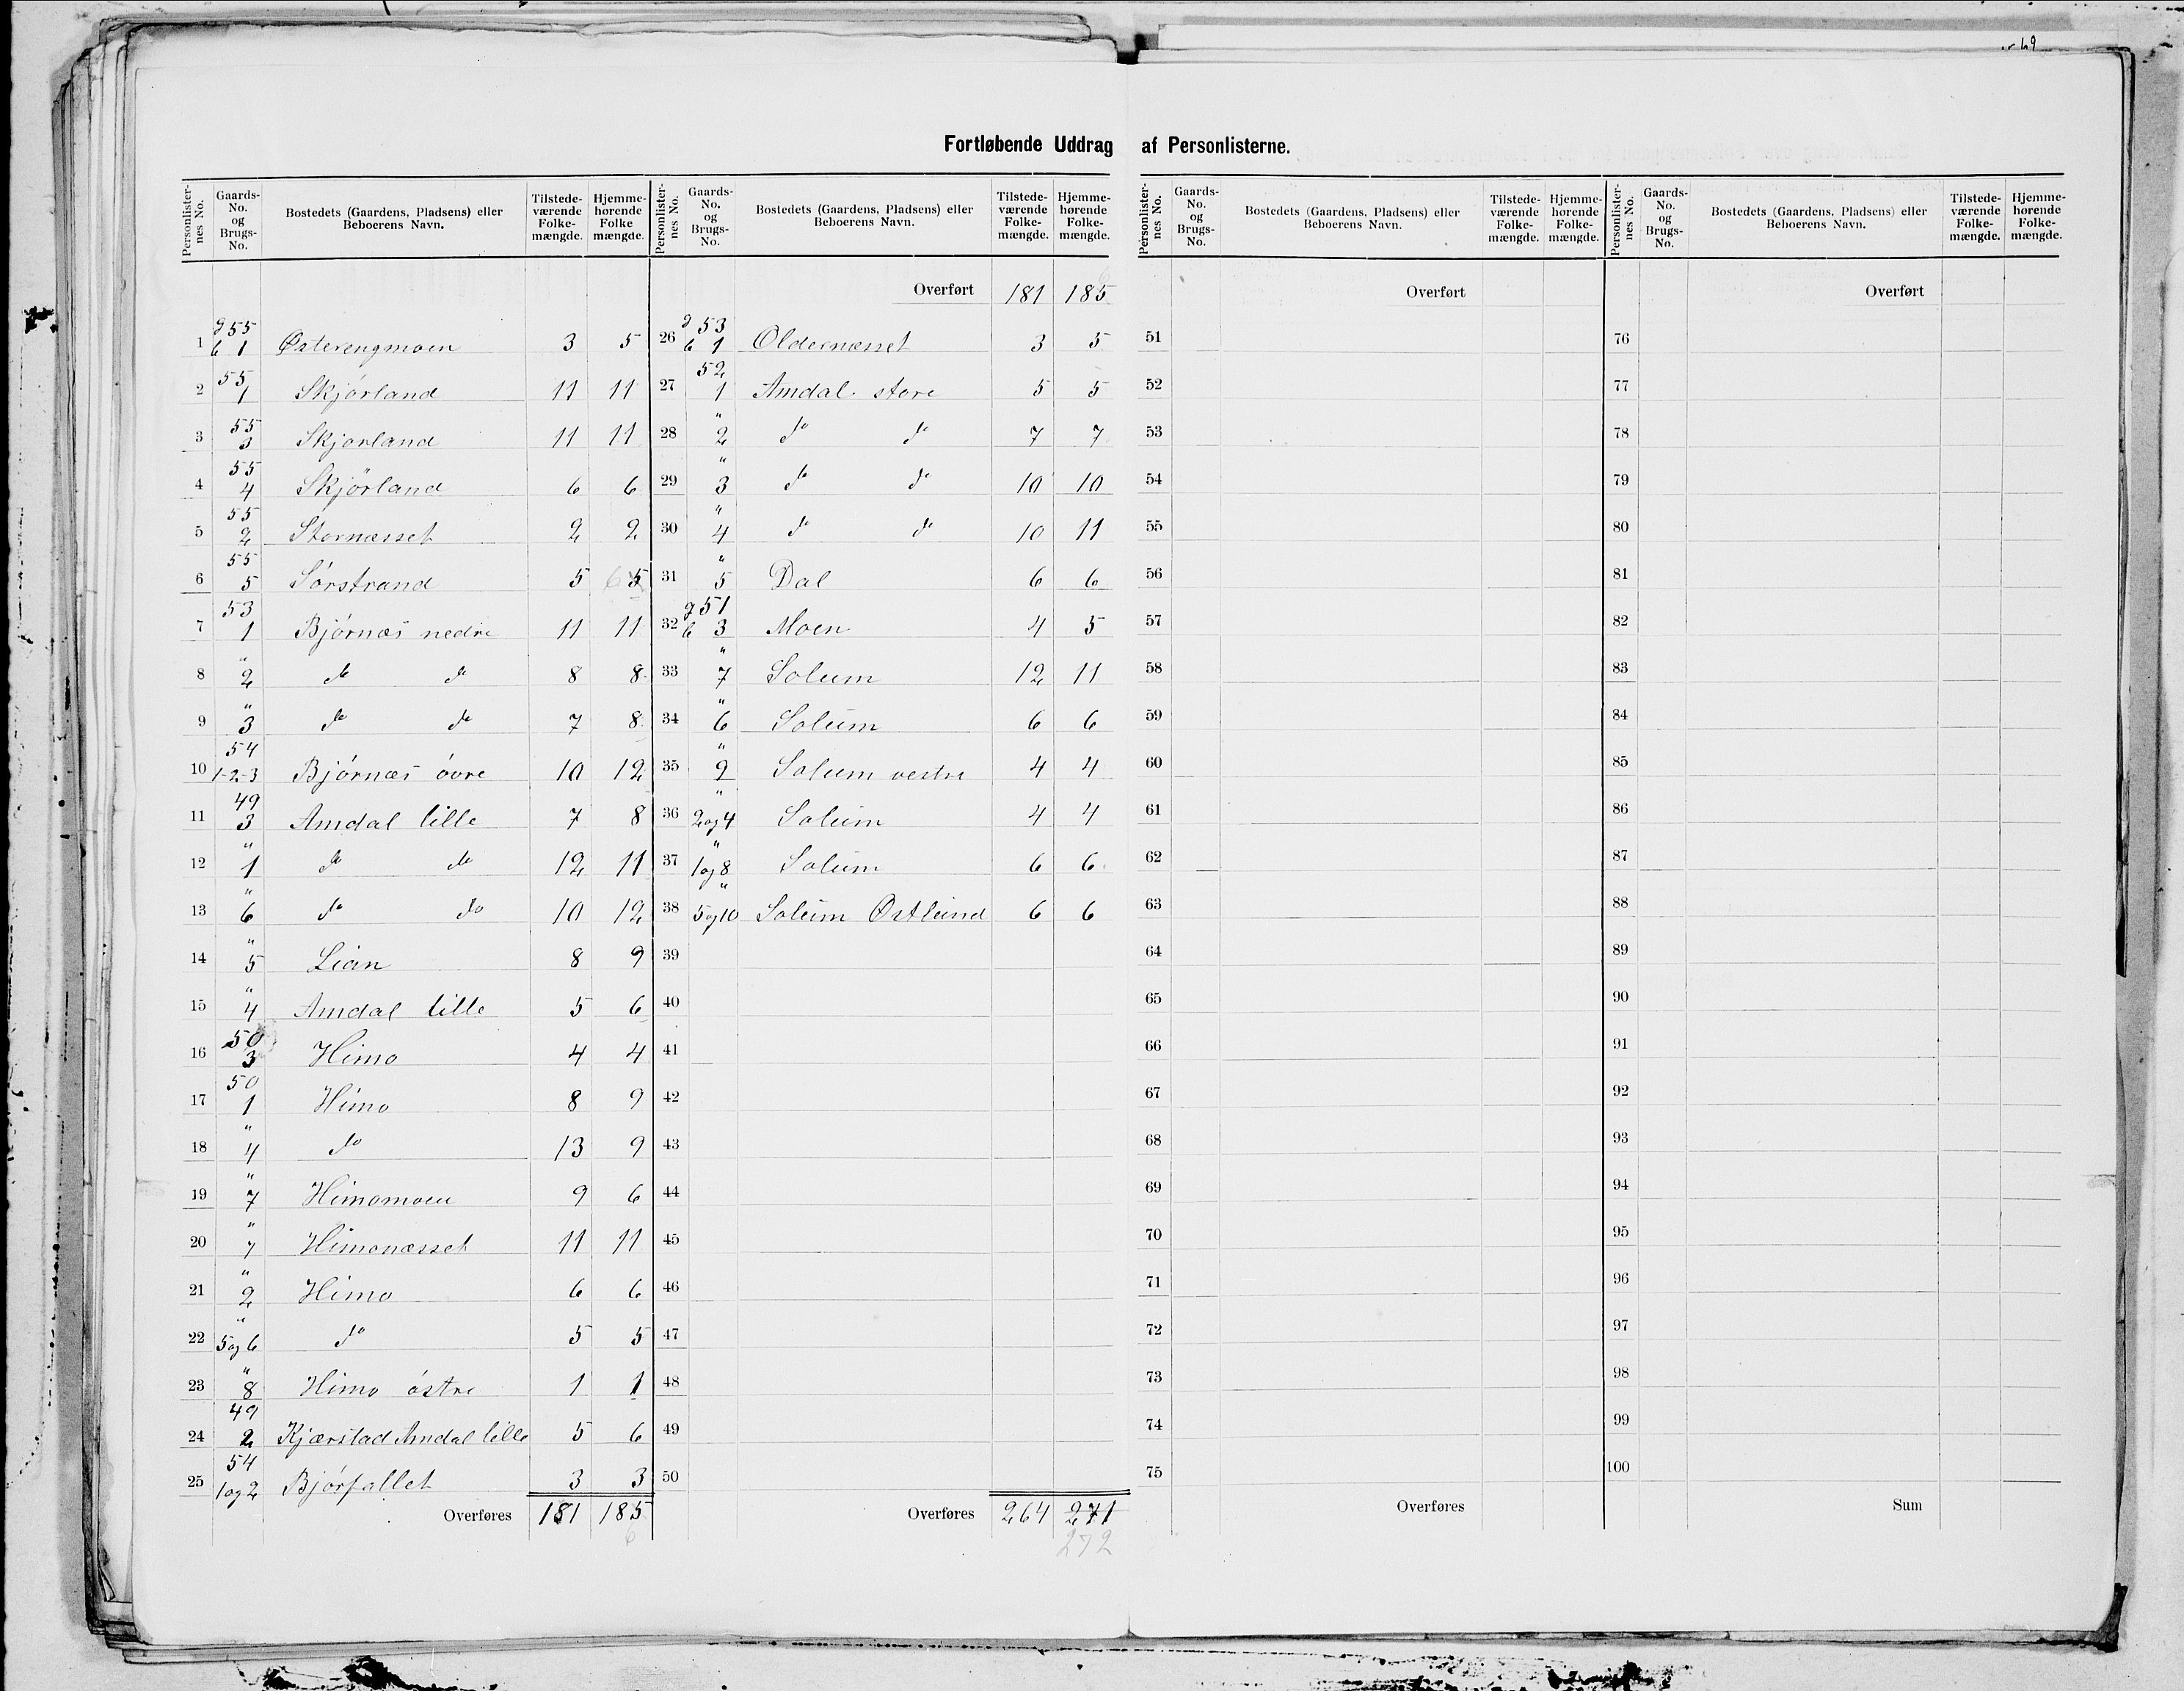 Fortløbende Uddrag af Personlisterne.
Personlisternes No. | Gaards-No. og Brugs-No. | Bostedets (Gaardens, Pladsens) eller Beboerens Navn. | Tilstedeværende Folkemængde. | Hjemmehørende Folkemængde.
1 g 55 b 1 Østerengmoen 3 5
2 55 1 Skjørland 11 11
3 55 3 Skjorland 11 11
4 55 4 Skjörland 6 6
5 55 2 Stornæsset 2 2
6 55 5 Sörstrand 5 6 5
7 53 1 Bjórnæs nedre 11 11
8 " 2 do do 8 8
9 " 3 do do 7 8
10 54 1-2-3 Bjórnæs óvre 10 12
11 49 3 Amdal lille 7 8
12 " 1 do do 12 11
13 " 6 do do 10 12
14 " 5 Lian 8 9
15 " 4 Amdal lille 5 6
16 50 3 Himo 4 4
17 50 1 Himo 8 9
18 " 4 do 13 9
19 " 7 Himomoen 9 6
20 " 7 Himonæsset 11 11
21 " 2 Himo 6 6
22 " 5 og 6 do 5 5
23 " 8 Himo óstre 1 1
24 49 2 Kjærstad Amdal lille 5 6
25 54 1 og 2 Bjórfallet 3 3
Overføres 181 185
6
Personlisternes No. | Gaards-No. og Brugs-No. | Bostedets (Gaardens, Pladsens) eller Beboerens Navn. | Tilstedeværende Folkemængde. | Hjemmehørende Folkemængde.
6
Overført 181 185
26 g 53 b 1 Oldernæsset 3 5
27 52 1 Amdal store 5 5
28 " 2 do do 7 7
29 " 3 do do 10 10
30 " 4 do do 10 11
31 " 5 Dal 6 6
32 g 51 b 3 Moen 4 5
33 " 7 Solum 12 11
34 " 6 Solum 6 6
35 " 9 Solum vestre 4 4
36 " 2 og 4 Solum 4 4
37 " 1 og 8 Solum 6 6
38 " 5 og 10 Solum Østlund 6 6
39
40
41
42
43
44
45
46
47
48
49
50
Overføres 264 271
272
Personlisternes No. | Gaards-No. og Brugs-No. | Bostedets (Gaardens, Pladsens) eller Beboerens Navn. | Tilstedeværende Folkemængde. | Hjemmehørende Folkemængde.
Overført
51
52
53
54
55
56
57
58
59
60
61
62
63
64
65
66
67
68
69
70
71
72
73
74
75
Overføres
Personlisternes No. | Gaards-No. og Brugs-No. | Bostedets (Gaardens, Pladsens) eller Beboerens Navn. | Tilstedeværende Folkemængde. | Hjemmehørende Folkemængde.
Overført
76
77
78
79
80
81
82
83
84
85
86
87
88
89
90
91
92
93
94
95
96
97
98
99
100
Sum